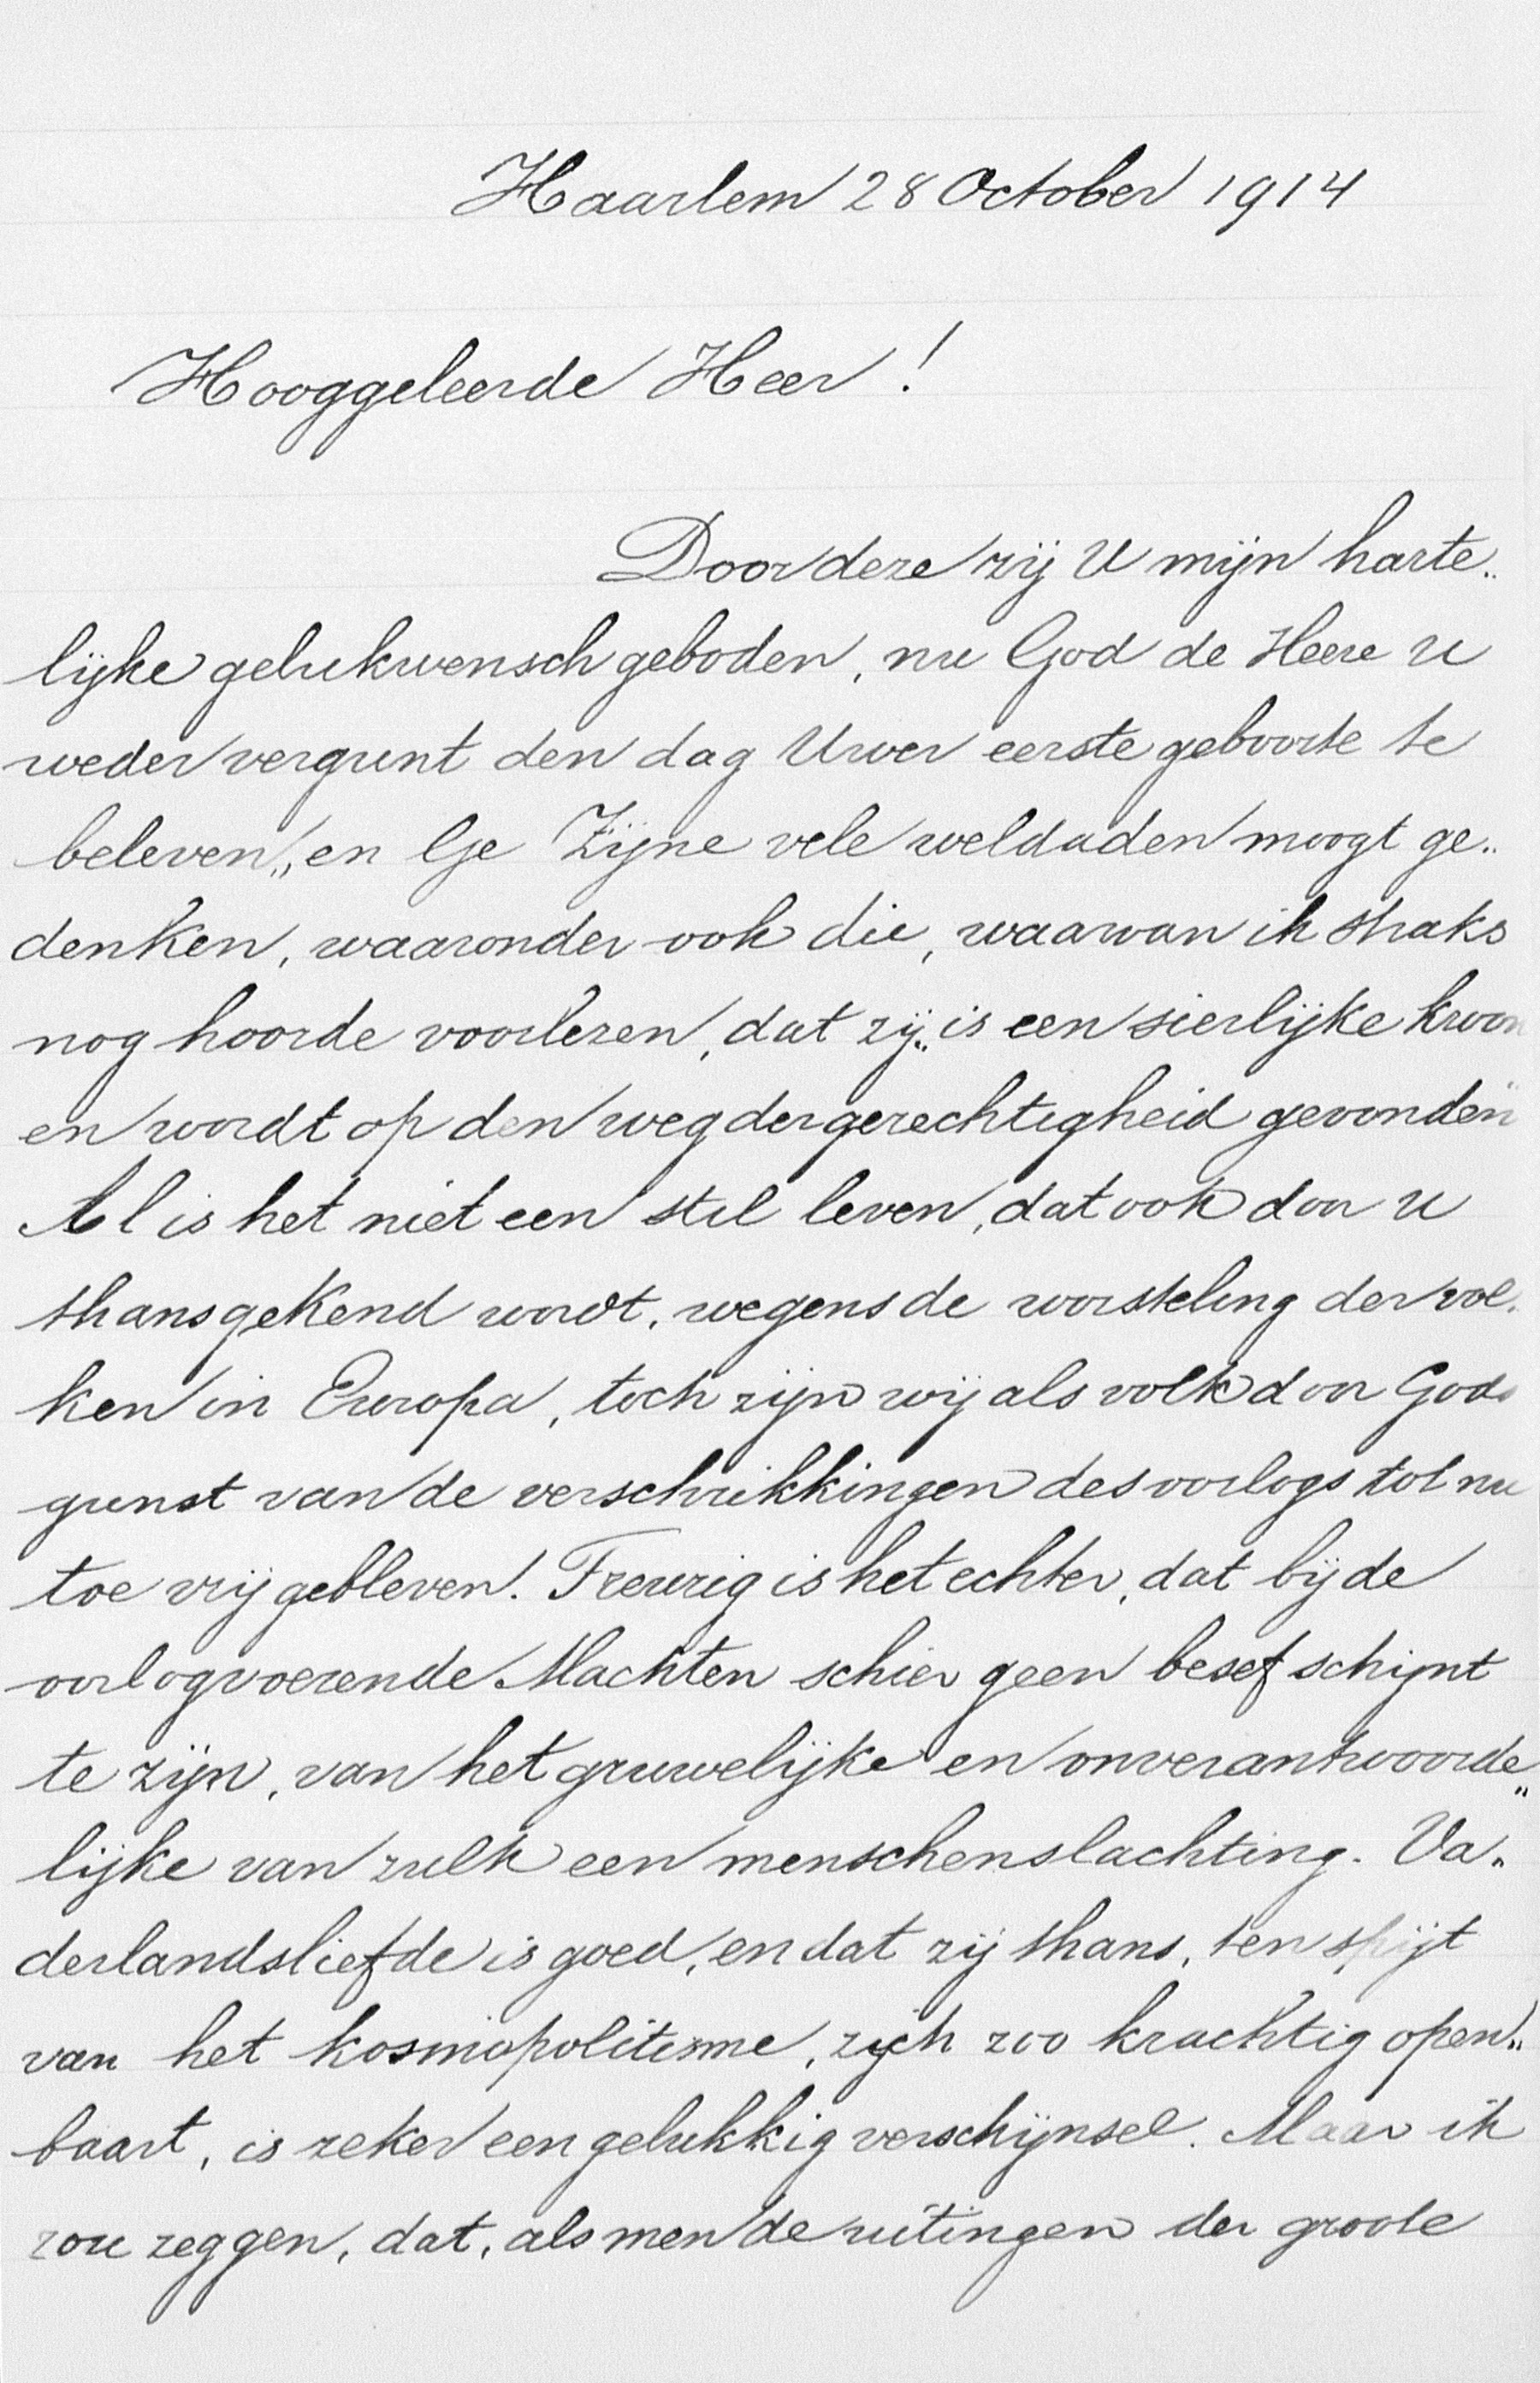 Haarlem 28 October 1914
Hooggeleerde Heer!
Door deze zij U mijn harte„
lijke gelukwensch geboden, nu God de Heere U
weder vergunt den dag Uwer eerste geboorte te
beleven, en Ge Zijne vele weldaden moogt ge„
denken, waaronder ook die, waarvan ik straks
nog hoorde voorlezen, dat zij „is een sierlijke kroon
en wordt op den weg der gerechtigheid gevonden"
Al is het niet een stil leven, dat ook door U
thans gekend wordt, wegens de worsteling der vol„
ken in Europa, toch zijn wij als volk door Gods
gunst van de verschrikkingen des oorlogs tot nu
toe vrij gebleven. Treurig is het echter, dat bij de
oorlogvoerende Machten schier geen besef schijnt
te zijn, van het gruwelijke en onverantwoorde„
lijke van zulk een menschenslachting. Va„
derlandsliefde is goed, en dat zij thans, ten spijt
van het kosmopolitisme, zich zoo krachtig open„
baart, is zeker een gelukkig verschijnsel. Maar ik
zou zeggen, dat, als men de uitingen der groote